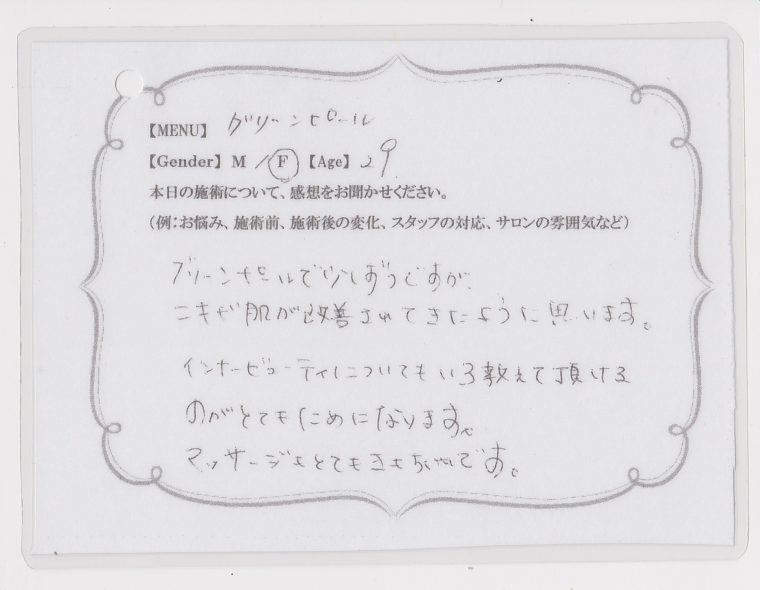 【MENU】 グリーンピール
【Gender】 M / F 【Age】 29
本日の施術について、感想をお聞かせください。
(例:お悩み、施術前、施術後の変化、スタッフの対応、サロンの雰囲気など)
グリーンピールで少しずつですが、
ニキビ肌が改善されてきたように思います。
インナービューティについてもいろ教えて頂ける
のがとてもためになります。
マッサージもとてもきもちいいです。